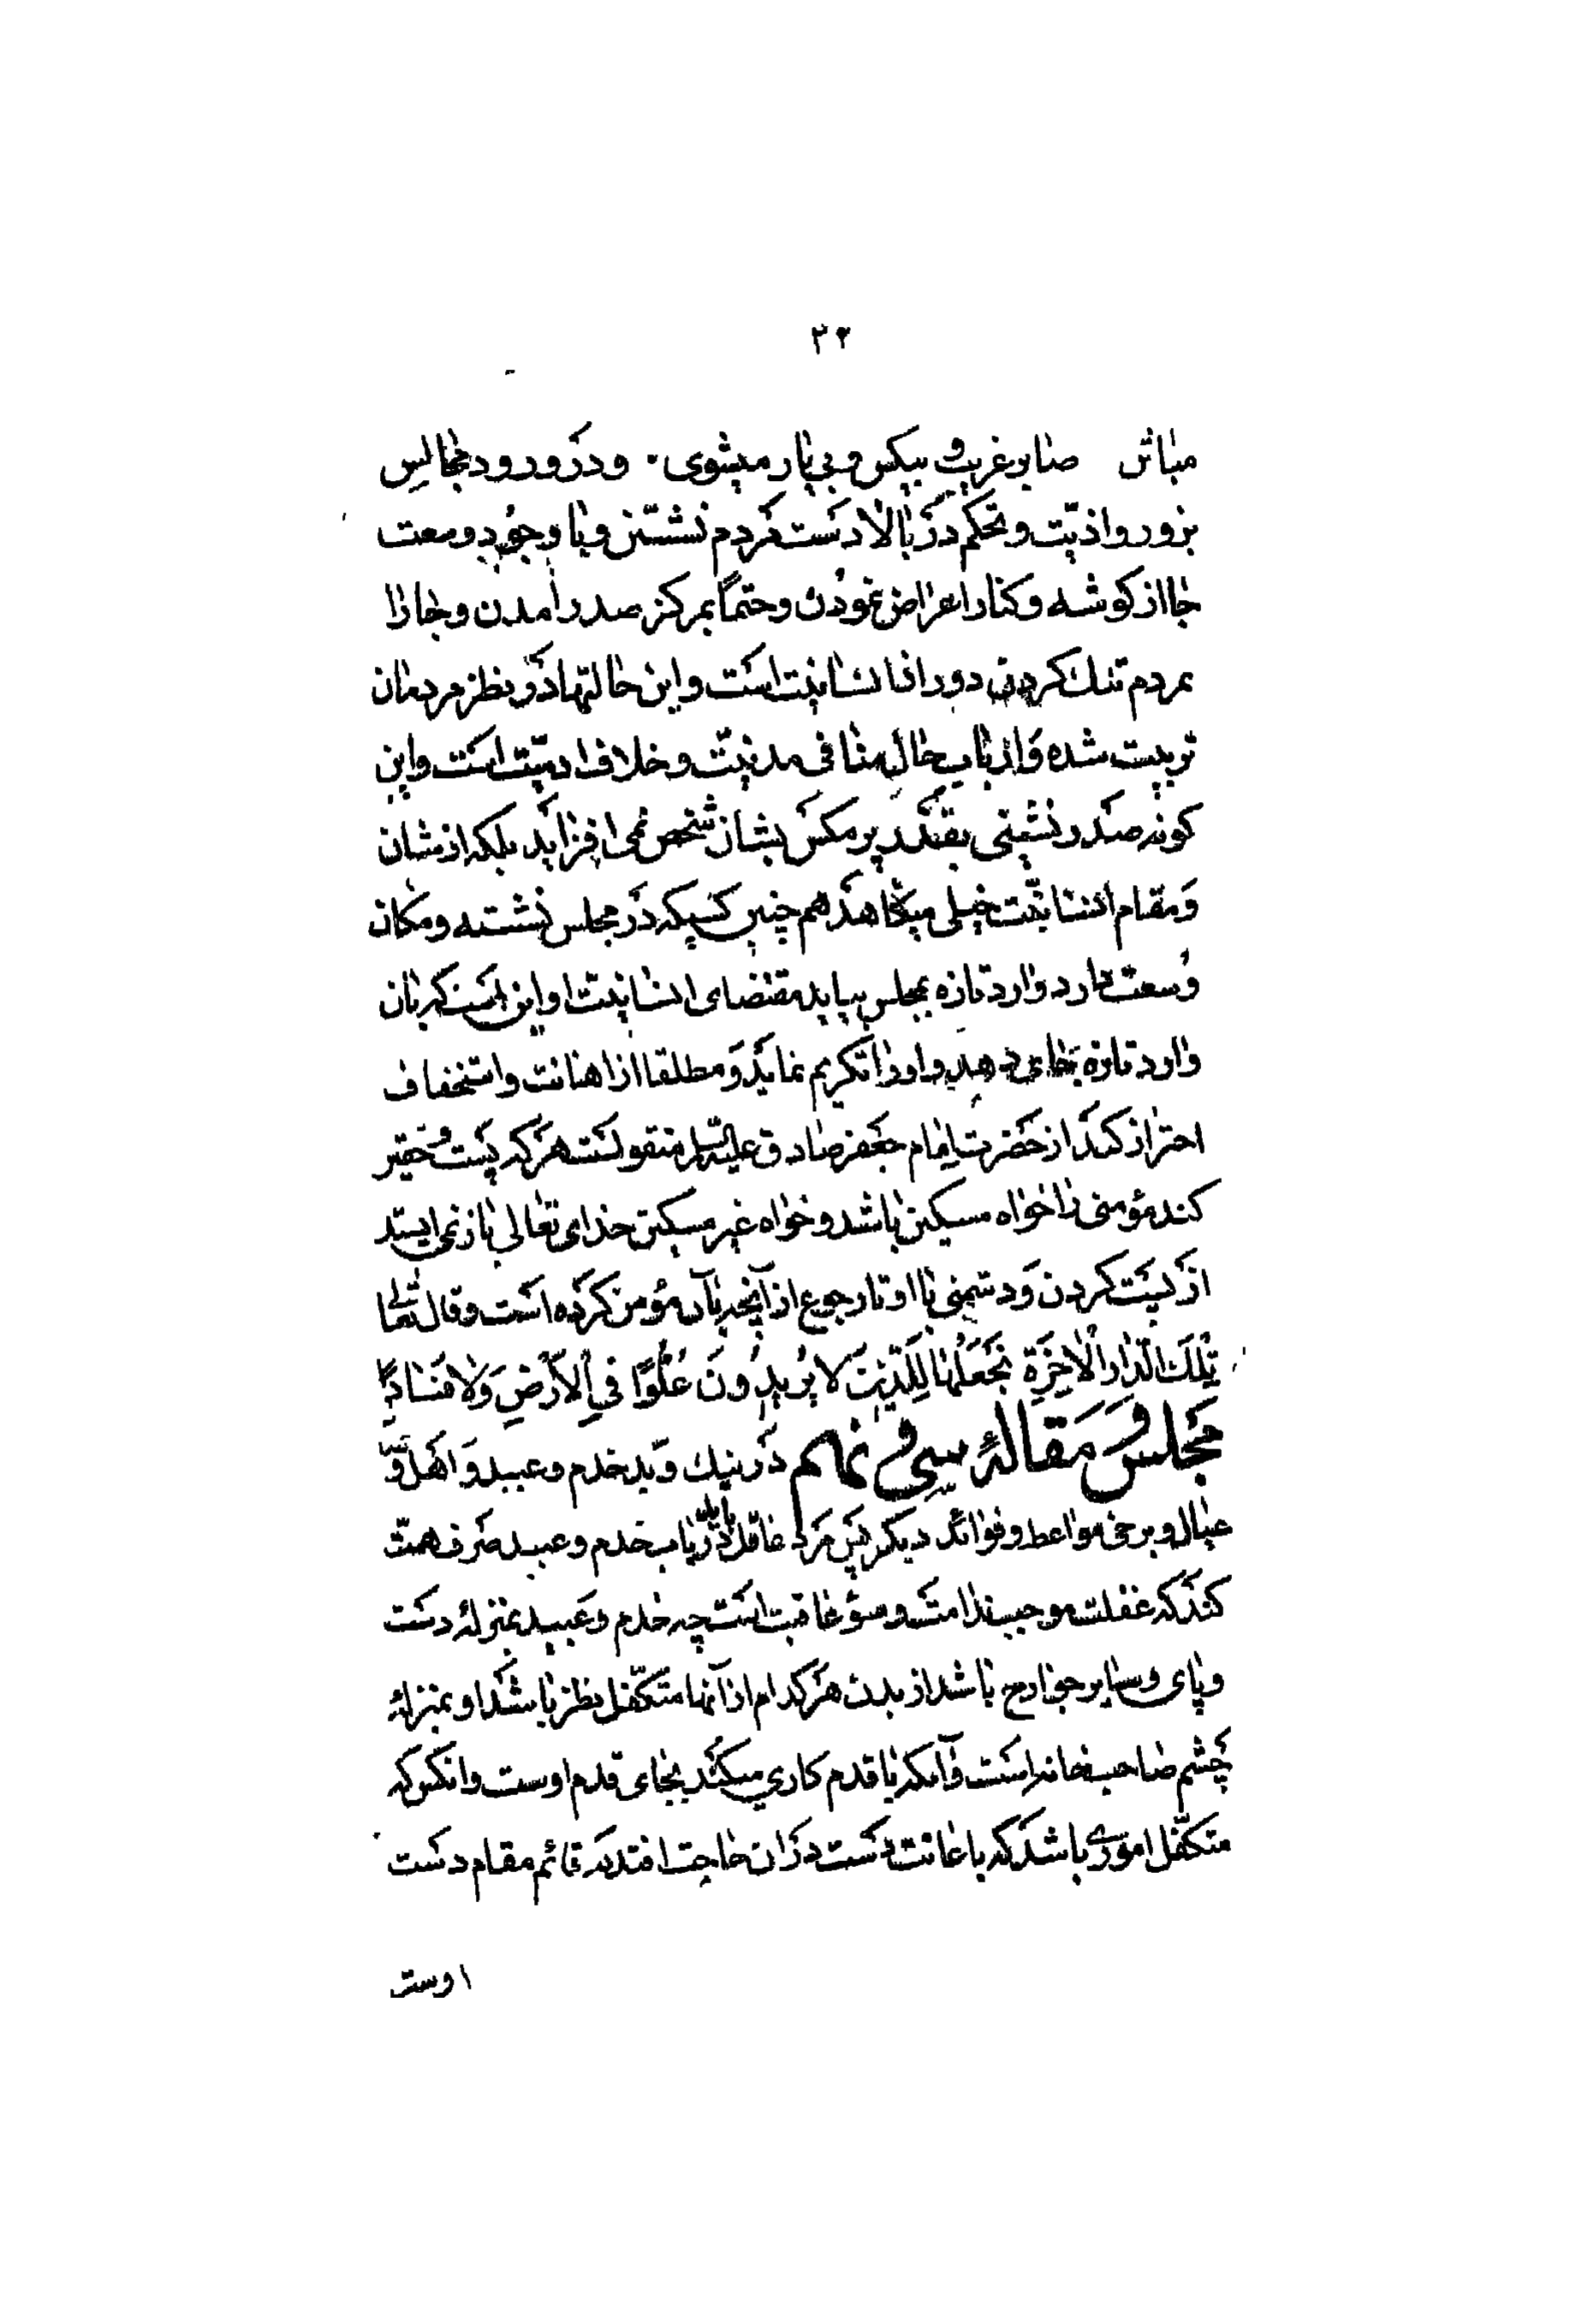 ۳۲
مباش صابر غریب و بیکس و بی یار میشوی ۰ و در ورود مجالس
بزور و اذیّت و تحکم در بالا دست مردم نشستن و با وجود وسعت
جا از کوشه و کنار اعراض نمودن و حتماً بمرکز صدر آمدن و جا را
بمردم تنك کردن دور از انسانیت است و این حالتها در نظر مردمان
تربیت شده و ارباب حال منافی مدنیّت و خلاف ادمیّت است و این
کونه صدر نشینی بقدر پر مکس بشان شخص نمی افزاید بلکه از شان
و مقام انسانیّت خیلی میکاهد هم چنین کسیکه در مجلس نشسته و مکان
وسعت دارد وارد تازه بمجلس بیاید مقتضای انسانیّت او این است که بان
وارد تازه جای دهد و او را تکریم نماید و مطلقا از اهانت و استخفاف
احتراز کند از حضرت امام جعفر صادق علیه السلام منقولست هر که پست و حقیر
کند مؤمنی را خواه مسکین باشد و خواه غیر مسکین خدای تعالی باز نمی ایستد
از پست کردن و دشمنی با او تا رجوع از آنچه بآن مؤمن کرده است و قال تعالی
تِلْكَ الدّارُ الْآخِرَةُ نَجْعَلُهَا لِلَّذِينَ لا يُرِيدُونَ عُلُوًّا فِي الْأَرْضِ وَلا فَسَادًا
مجلس و مقالهٔ سی و نهم در نیك و بد خدم و عبید و اهل و
عیال و برخی مواعظ و فوائد دیکر پس مرد عاقل باید در باب خدم و عبید صرف همت
کند که غفلت موجب ندامت و سوٴ عاقبت است چه خدم و عبید بمنزلهٔ دست
و پای و سایر جوارح باشد از بدن هر کدام از آنها متکفّل نظر باشد او بمنزلهٔ
چشم صاحب خانه است و آنکه با قدم کاری میکند بجای قدم اوست و انکس که
متکفّل اموری باشد که باعانت دست در آن حاجت افتد که قائم مقام دست
اوست